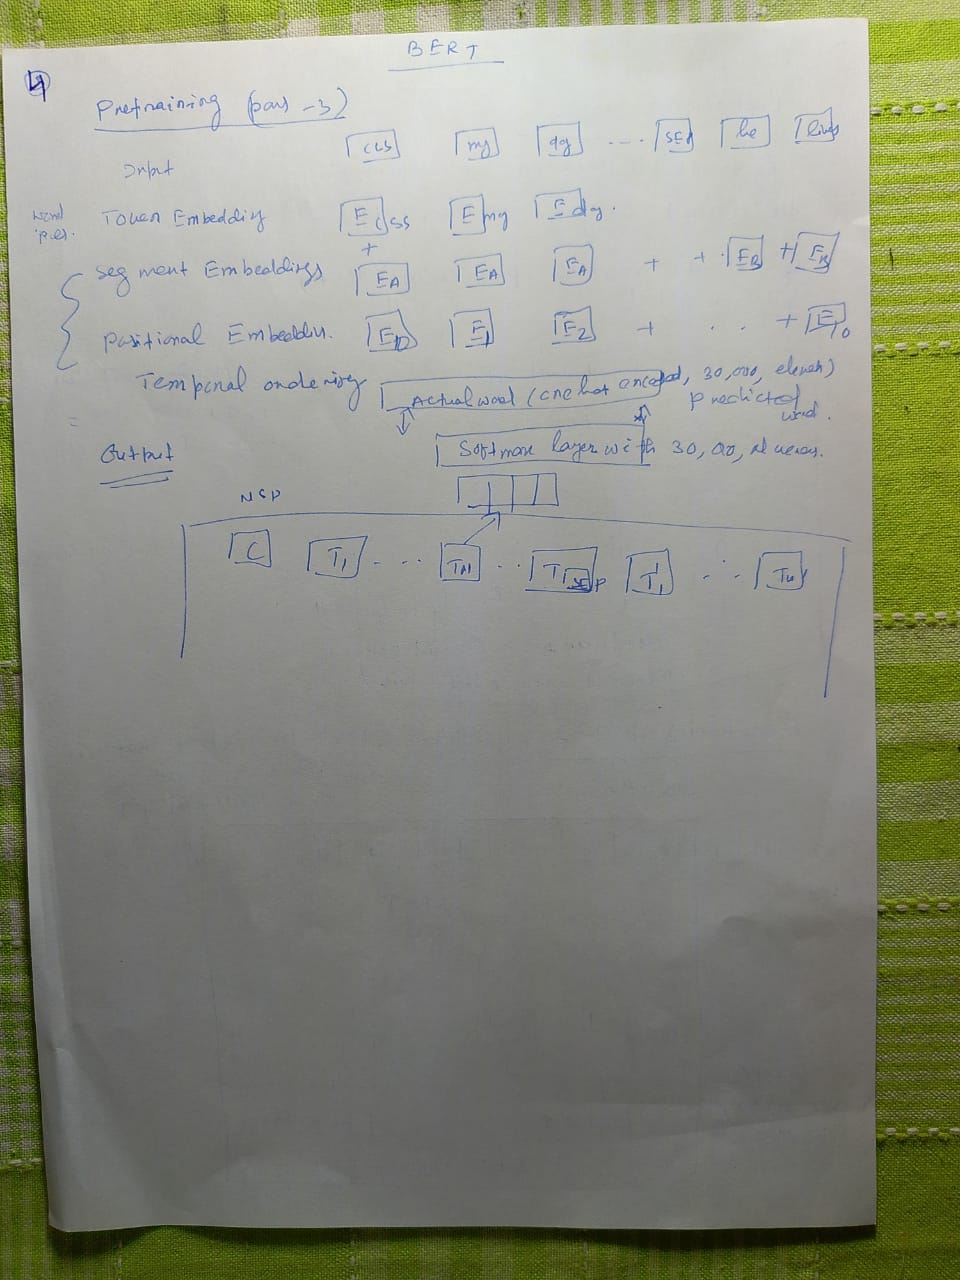 BERT
4
Pretraining (pass -3)
Input [CLS] [my] [dog] .... [SEP] [he] [likes]
Token Embedding E my E dog.
+
Segment Embeddings EA EA EA + + . EB + EB
Positional Embeddin. E0 E1 E2 + . . . + E10
Temporal ordering Actual word (one hot encoded, 30,000, elements)
predicted word.
Output Softmax layer with 30,000,
NSP
C T1 ... TN .. T[SEP] T'1 ...